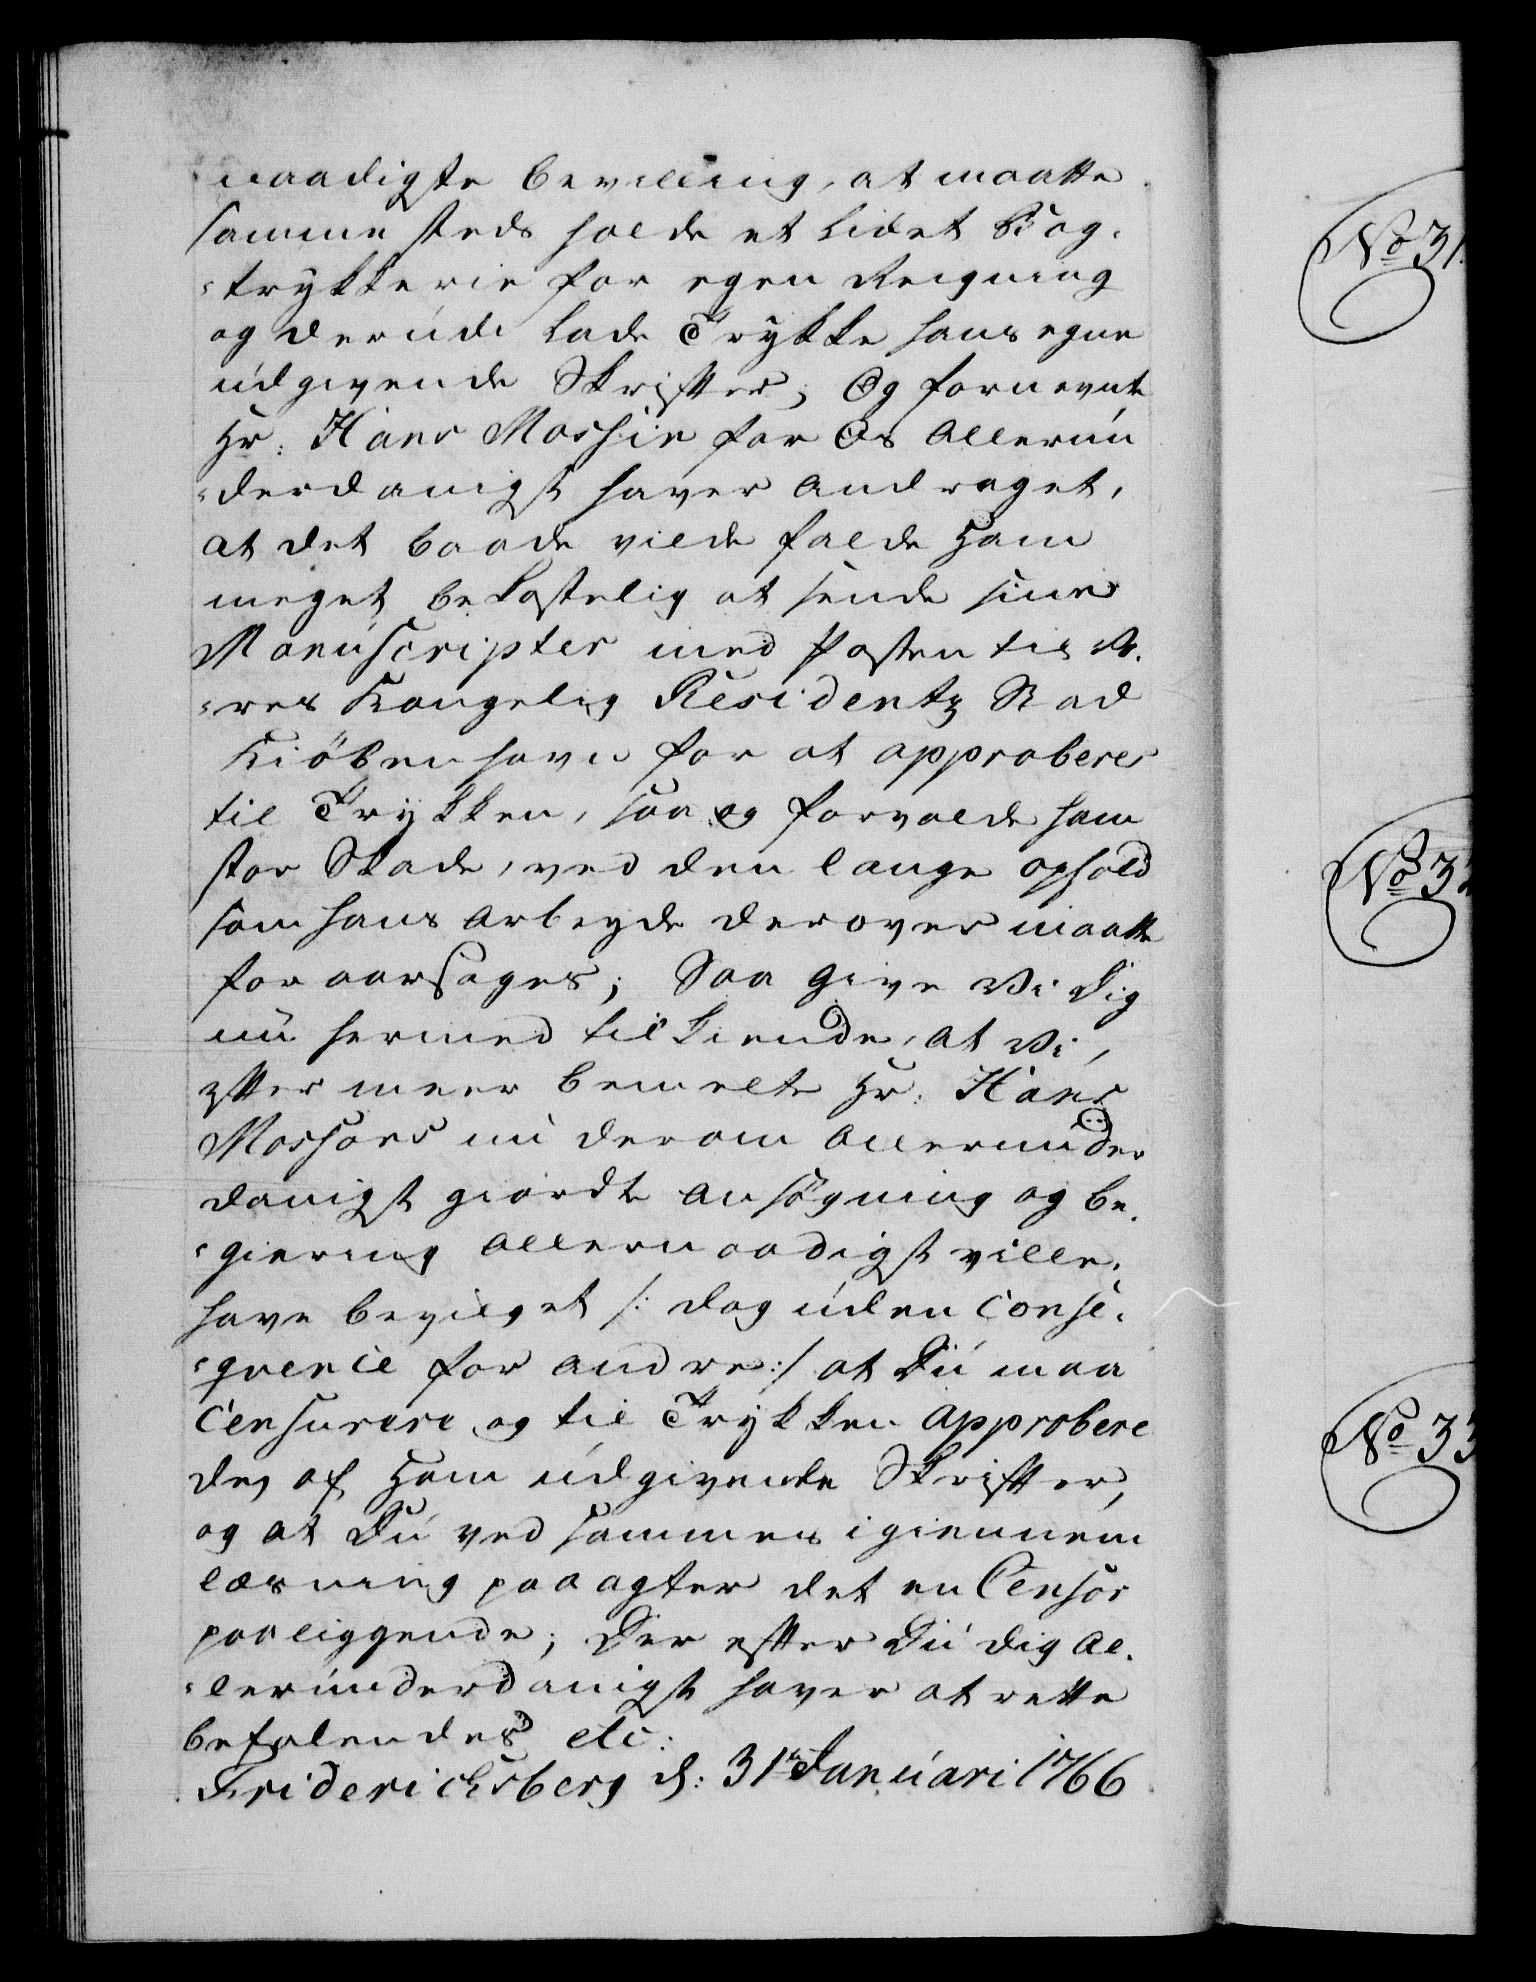 naadigste Bevilling, at maatte
samme steds holde et lidet Bog-
-trykkerie for egen Reigning
og derudi lade Trykke hans egne
udgivende Skrifter; Og fornevnte
Hr: Hans Mossin for Os Allerun
-derdanigst haver andraget,
at det baade vilde falde Ham
meget bekostelig at sende sine
Manuscripter med Posten til Vo-
-res Kongelig Residentz Stad
Kiöbenhavn for at approberes
til Trykken, saa og forvolde ham
stor Skade, ved den lange ophold
som hans Arbeyde derover maatte
foraarsages; Saa give Vi Dig
nu hermed tilkiende, at Vi,
efter meer bemelte Hr: Hans
Mossins nu derom allerunder
danigst giordte ansögning og be-
-giering allernaadigst ville
have bevilget /: dog uden Conse-
-qvence for andre :/ at Du maa
Censurere og til Trykken approbere
de, af Ham udgivende Skrifter,
og at Du ved sammes igiennem
læsning paaagter det en Censor
paaliggende; Der efter Du dig al-
-lerunderdanigst haver at rette
befalendes etc:
Friderichsberg d: 31te Januari 1766
No 31.
No 32
No 33